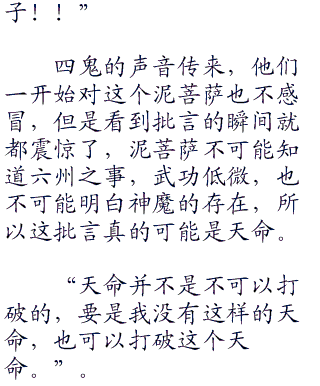 子！！”
四鬼的声音传来，他们
一开始对这个泥菩萨也不感
冒，但是看到批言的瞬间就
都震惊了，泥菩萨不可能知
道六州之事，武功低微，也
不可能明白神魔的存在，所
以这批言真的可能是天命。
“天命并不是不可以打
破的，要是我没有这样的天
命，也可以打破这个天
命。”。